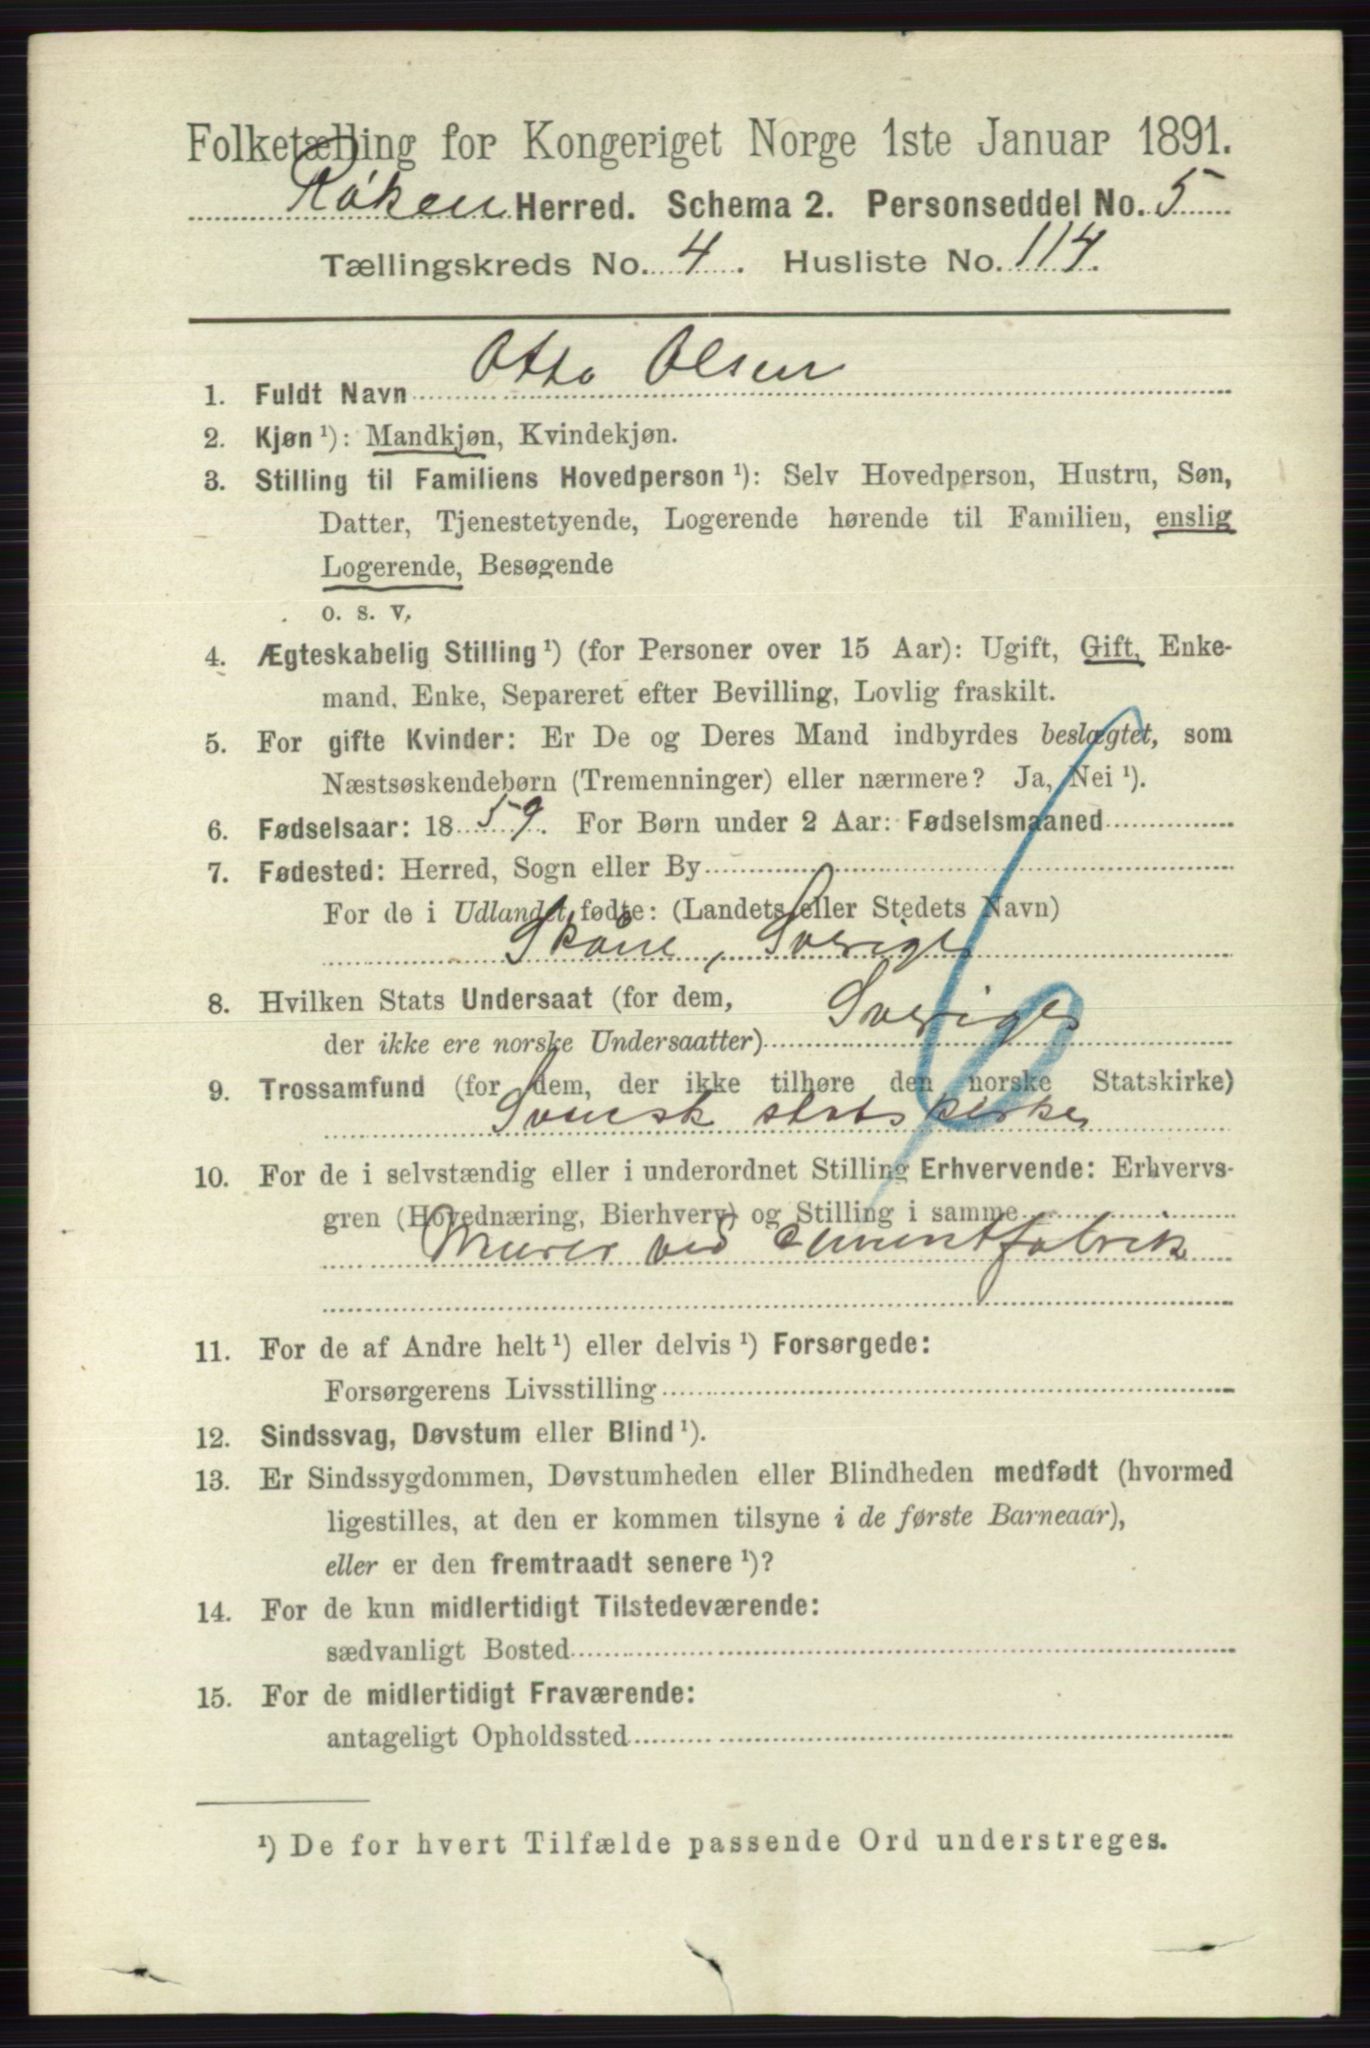 Folketælling for Kongeriget Norge 1ste Januar 1891.
Røken Herred. Schema 2. Personseddel No. 5
Tællingskreds No. 4. Husliste No. 114.
1. Fuldt Navn Otto Olsen
2. Kjøn ¹): Mandkjøn, Kvindekjøn.
3. Stilling til Familiens Hovedperson ¹): Selv Hovedperson, Hustru, Søn,
Datter, Tjenestetyende, Logerende hørende til Familien, enslig
Logerende, Besøgende
o. s. v.
4. Ægteskabelig Stilling ¹) (for Personer over 15 Aar): Ugift, Gift, Enke-
mand, Enke, Separeret efter Bevilling, Lovlig fraskilt.
5. For gifte Kvinder: Er De og Deres Mand indbyrdes beslægtet, som
Næstsøskendebørn (Tremenninger) eller nærmere? Ja, Nei ¹).
6. Fødselsaar: 1859. For Børn under 2 Aar: Fødselsmaaned
7. Fødested: Herred, Sogn eller By
For de i Udlandet fødte: (Landets eller Stedets Navn)
Skåne, Sverige
8. Hvilken Stats Undersaat (for dem,
der ikke ere norske Undersaatter) Sveriges
9. Trossamfund (for dem, der ikke tilhøre den norske Statskirke)
Svensk statskirke
10. For de i selvstændig eller i underordnet Stilling Erhvervende: Erhvervs-
gren (Hovednæring, Bierhverv) og Stilling i samme
Murer ved Cementfabrik
11. For de af Andre helt ¹) eller delvis ¹) Forsørgede:
Forsørgerens Livsstilling
12. Sindssvag, Døvstum eller Blind ¹).
13. Er Sindssygdommen, Døvstumheden eller Blindheden medfødt (hvormed
ligestilles, at den er kommen tilsyne i de første Barneaar),
eller er den fremtraadt senere ¹)?
14. For de kun midlertidigt Tilstedeværende:
sædvanligt Bosted
15. For de midlertidigt Fraværende:
antageligt Opholdssted
¹) De for hvert Tilfælde passende Ord understreges.